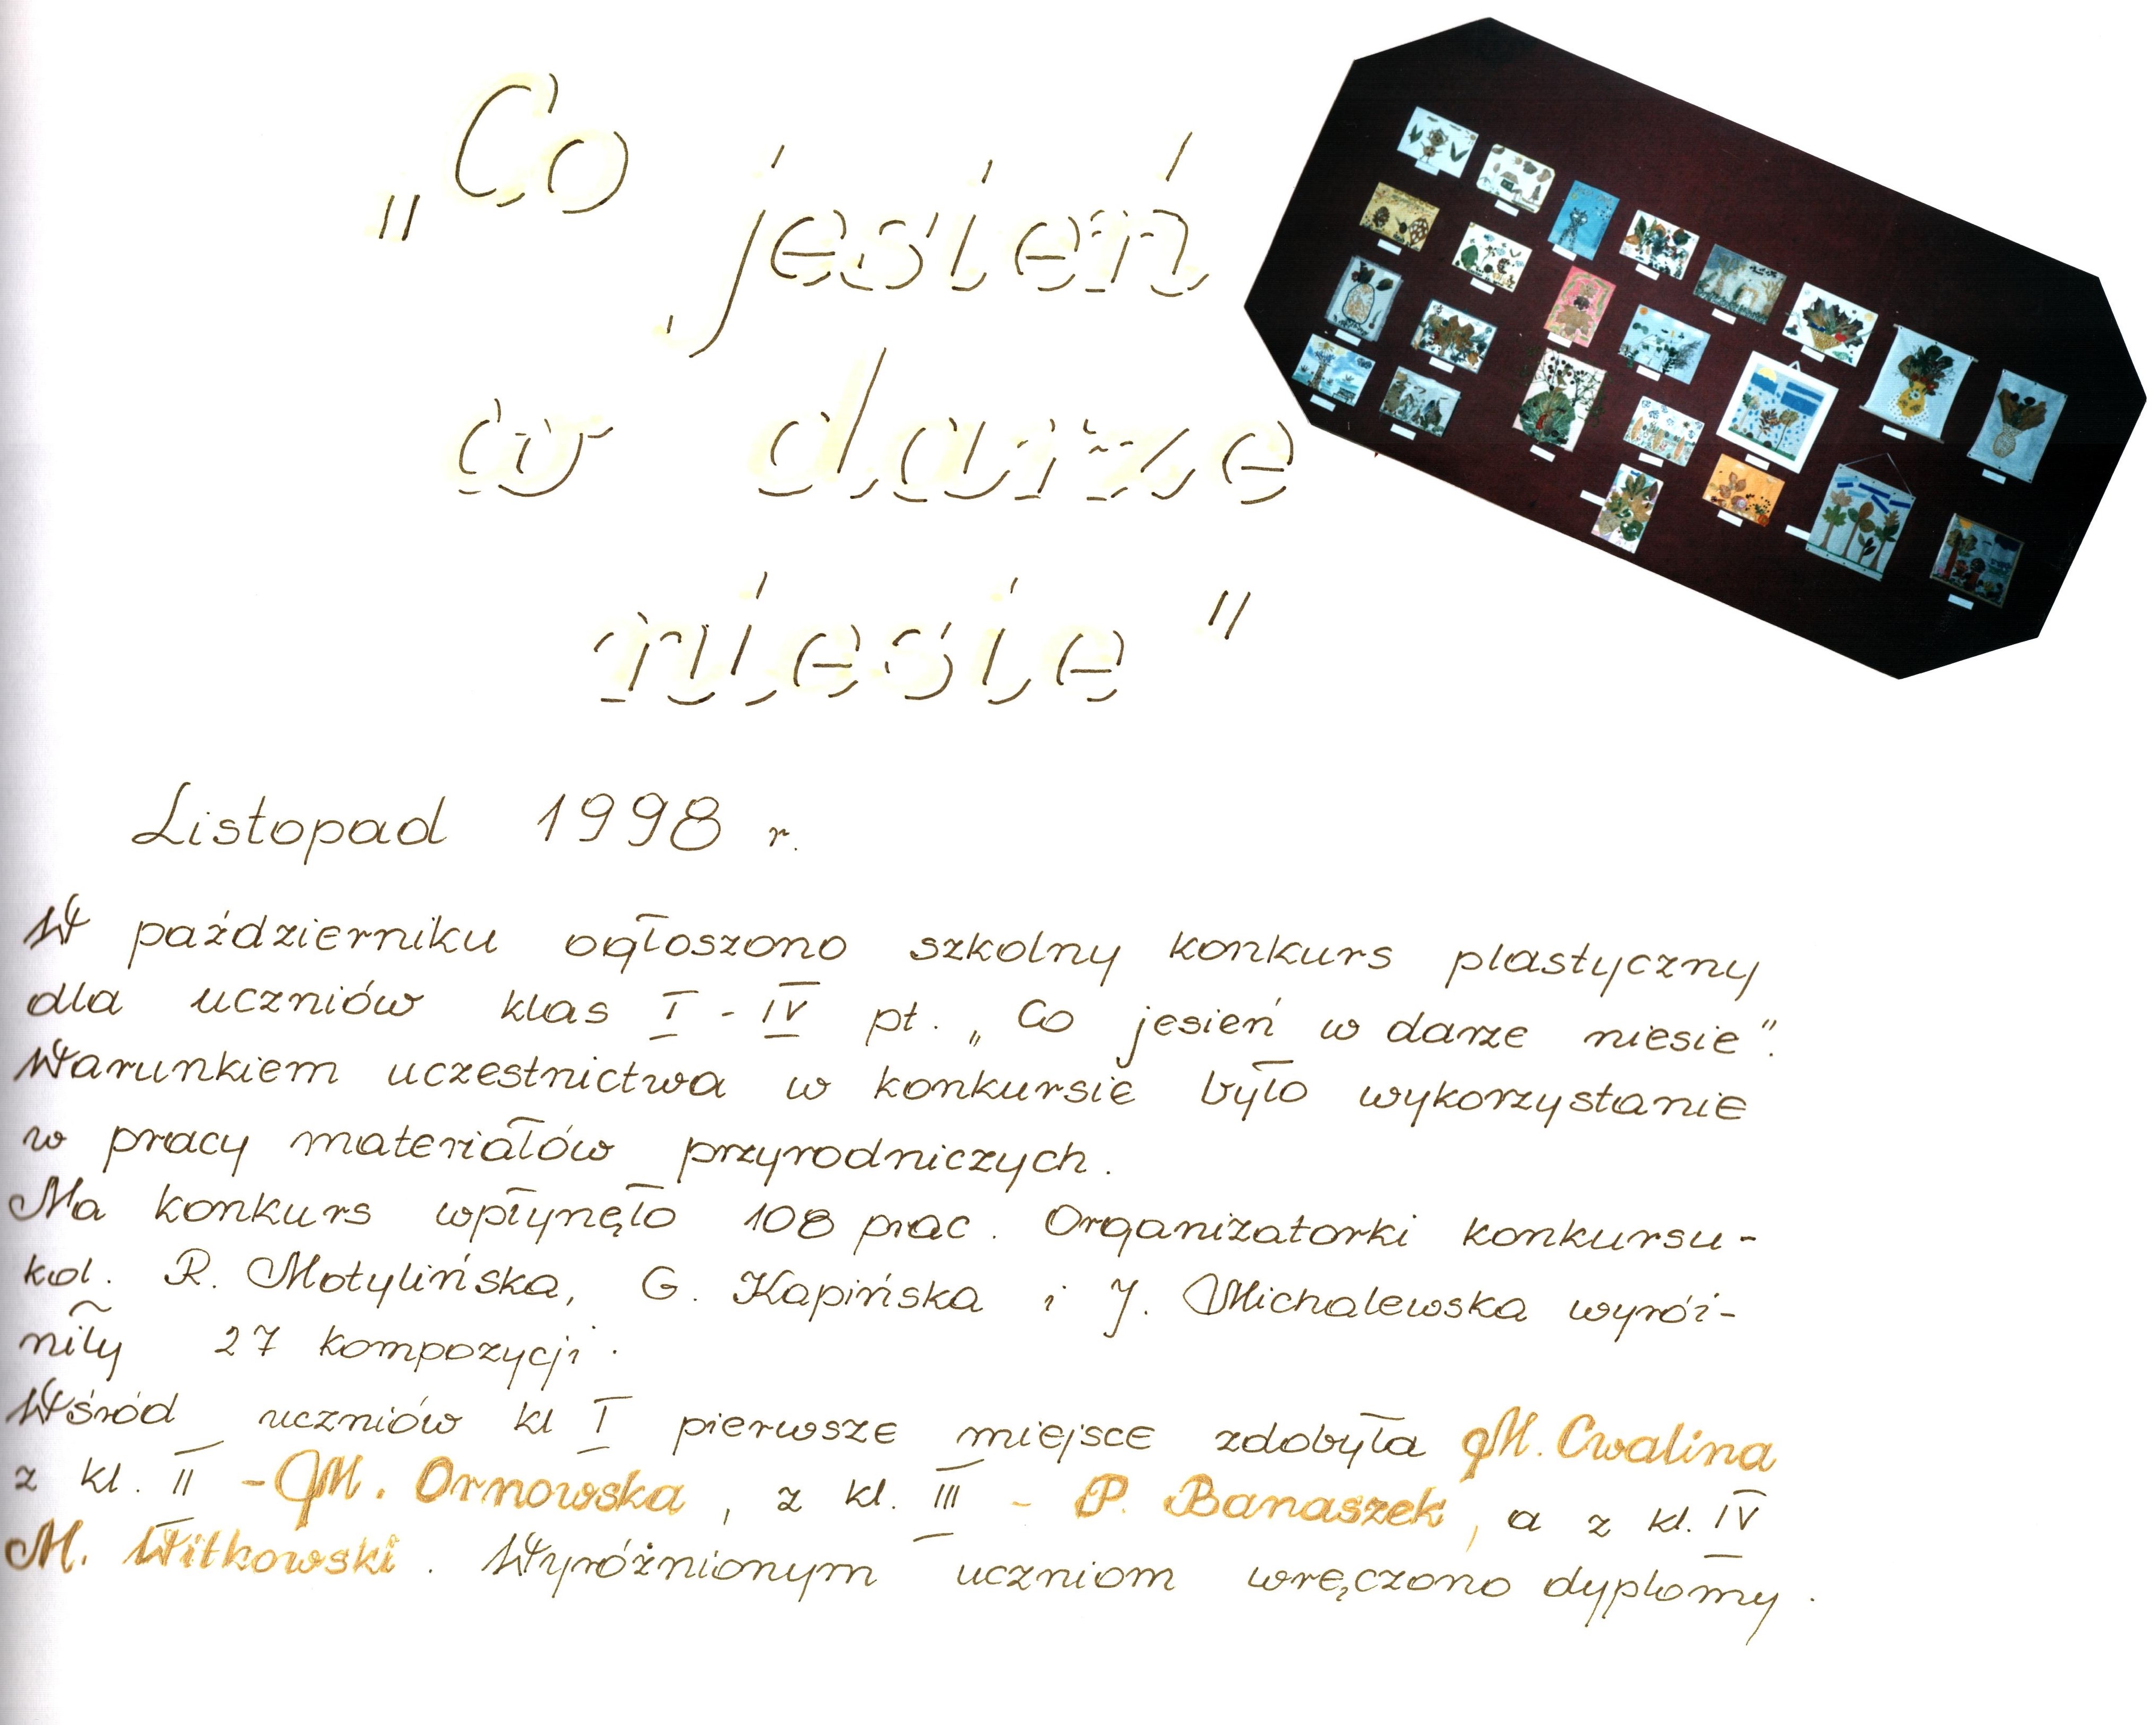 „Co
jesień
w darze
niesie"
Listopad 1998 r.
W październiku ogłoszono szkolny konkurs plastyczny
dla uczniów klas I - IV pt. „Co jesień w darze niesie".
Warunkiem uczestnictwa w konkursie było wykorzystanie
w pracy materiałów przyrodniczych.
Na konkurs wpłynęło 108 prac. Organizatorki konkursu -
kol. R. Motylińska, G. Kapińska i J. Michalewska wyróż-
niły 27 kompozycji.
Wśród uczniów kl I pierwsze miejsce zdobyła M. Cwalina
z kl. II - M. Ornowska, z kl. III - P. Banaszek, a z kl. IV
M. Witkowski. Wyróżnionym uczniom wręczono dyplomy.